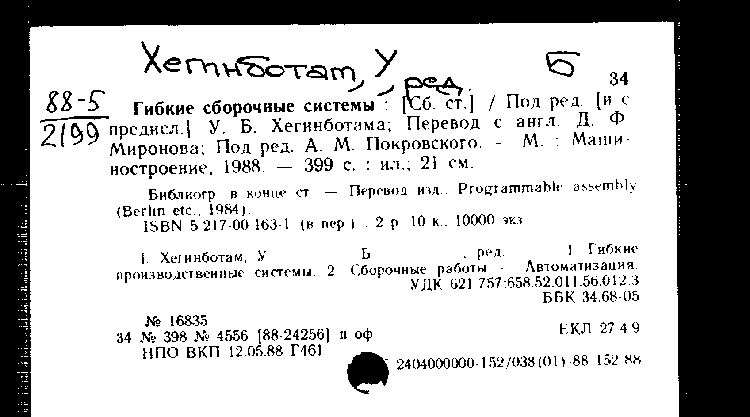 Хегинботам, У Б
, ред.
34
88-5
2199
Гибкие сборочные системы : [Сб. ст.] / Под ред. [и с
предисл.] У. Б. Хегинботама; Перевод с англ. Д. Ф
Миронова; Под ред. А. М. Покровского. - М. : Маши-
ностроение, 1988. — 399 с. : ил.; 21 см.
Библиогр в конце ст — Перевод изд.. Programmable assembly
(Berlin etc., 1984).
ISBN 5 217-00 163-1 (в пер ) . 2 р 10 к.. 10000 экз
1. Хегинботам, У Б , ред. 1 Гибкие
производственные системы. 2 Сборочные работы - Автоматизация.
УДК 621 757:658.52.011.56.012.3
ББК 34.68-05
№ 16835
34 № 398 № 4556 [88-24256] п оф ЕКЛ 27 4 9
НПО ВКП 12.05.88 Г461
2404000000-152/038(01)-88 152 88